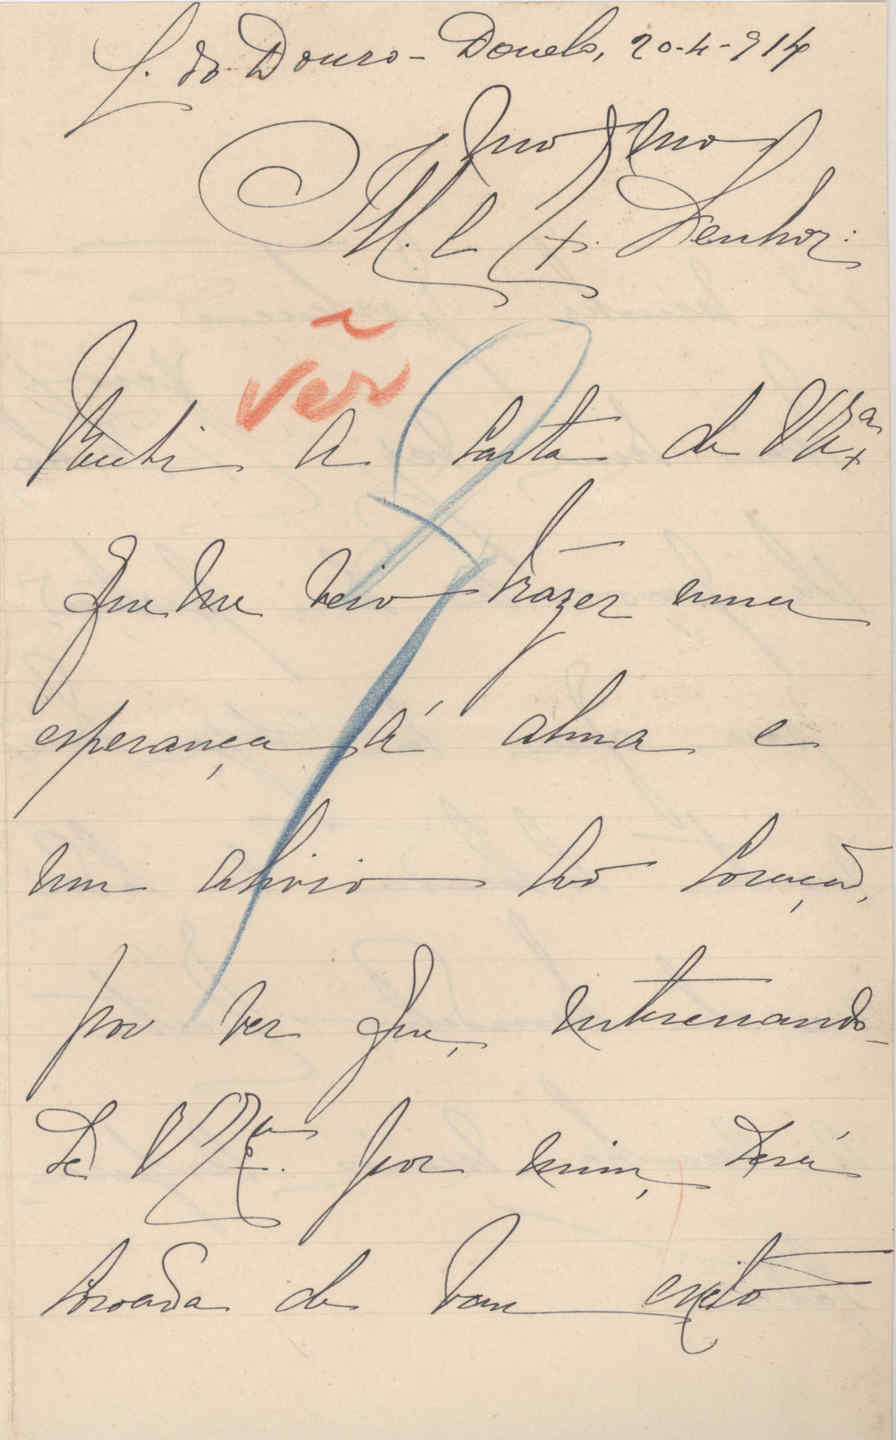 S. do Douro - Douels, 20-4-914
Imo Smo
M. e Ex. Senhor:
Vêr
Recebi a carta de V. Exª
que me veio trazer uma
esperança á alma e
um alivio ao coração,
por ver que, interessando-
se V. Exª. por mim, será
coroada de bom exito